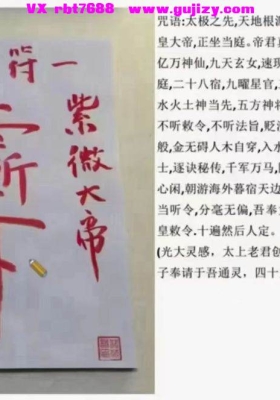 VX rbt7688  www.gujizy.com
符一
紫微大帝
咒语:太极之先,天地根源
皇大帝,正坐当庭。帝君真
亿万神仙,九天玄女,速现
庭,二十八宿,九曜星官,
水火土神当先,五方神将
不听敕令,不听法旨,贬
般,金无碍人木自穿,入水
士,逐诀秘传,千军万马
心闲,朝游海外暮宿天边
当听令,分毫无偏,吾奉
皇敕令.十遍然后人定。
(光大灵感,太上老君创
子奉请于吾通灵,四十